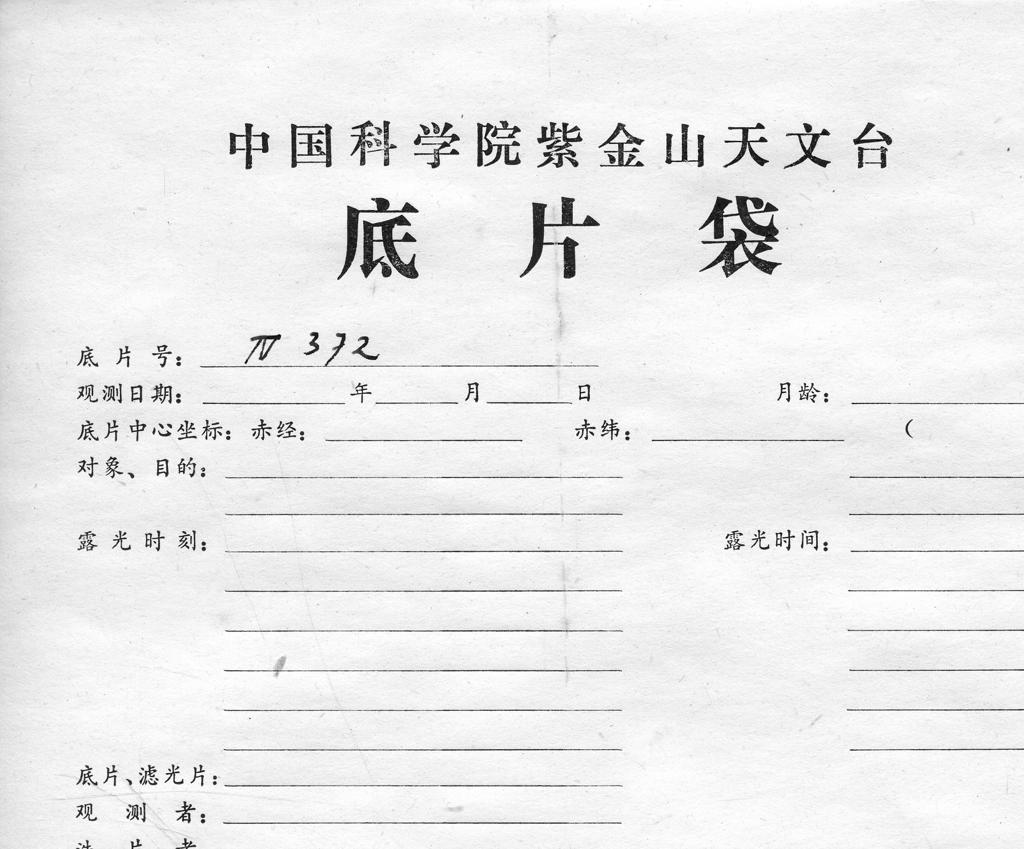 中国科学院紫金山天文台
底片袋
底片号： IV 372
观测日期： 年 月 日 月龄：
底片中心坐标：赤经： 赤纬： （
对象、目的：
露光时刻： 露光时间：
底片、滤光片：
观测者：